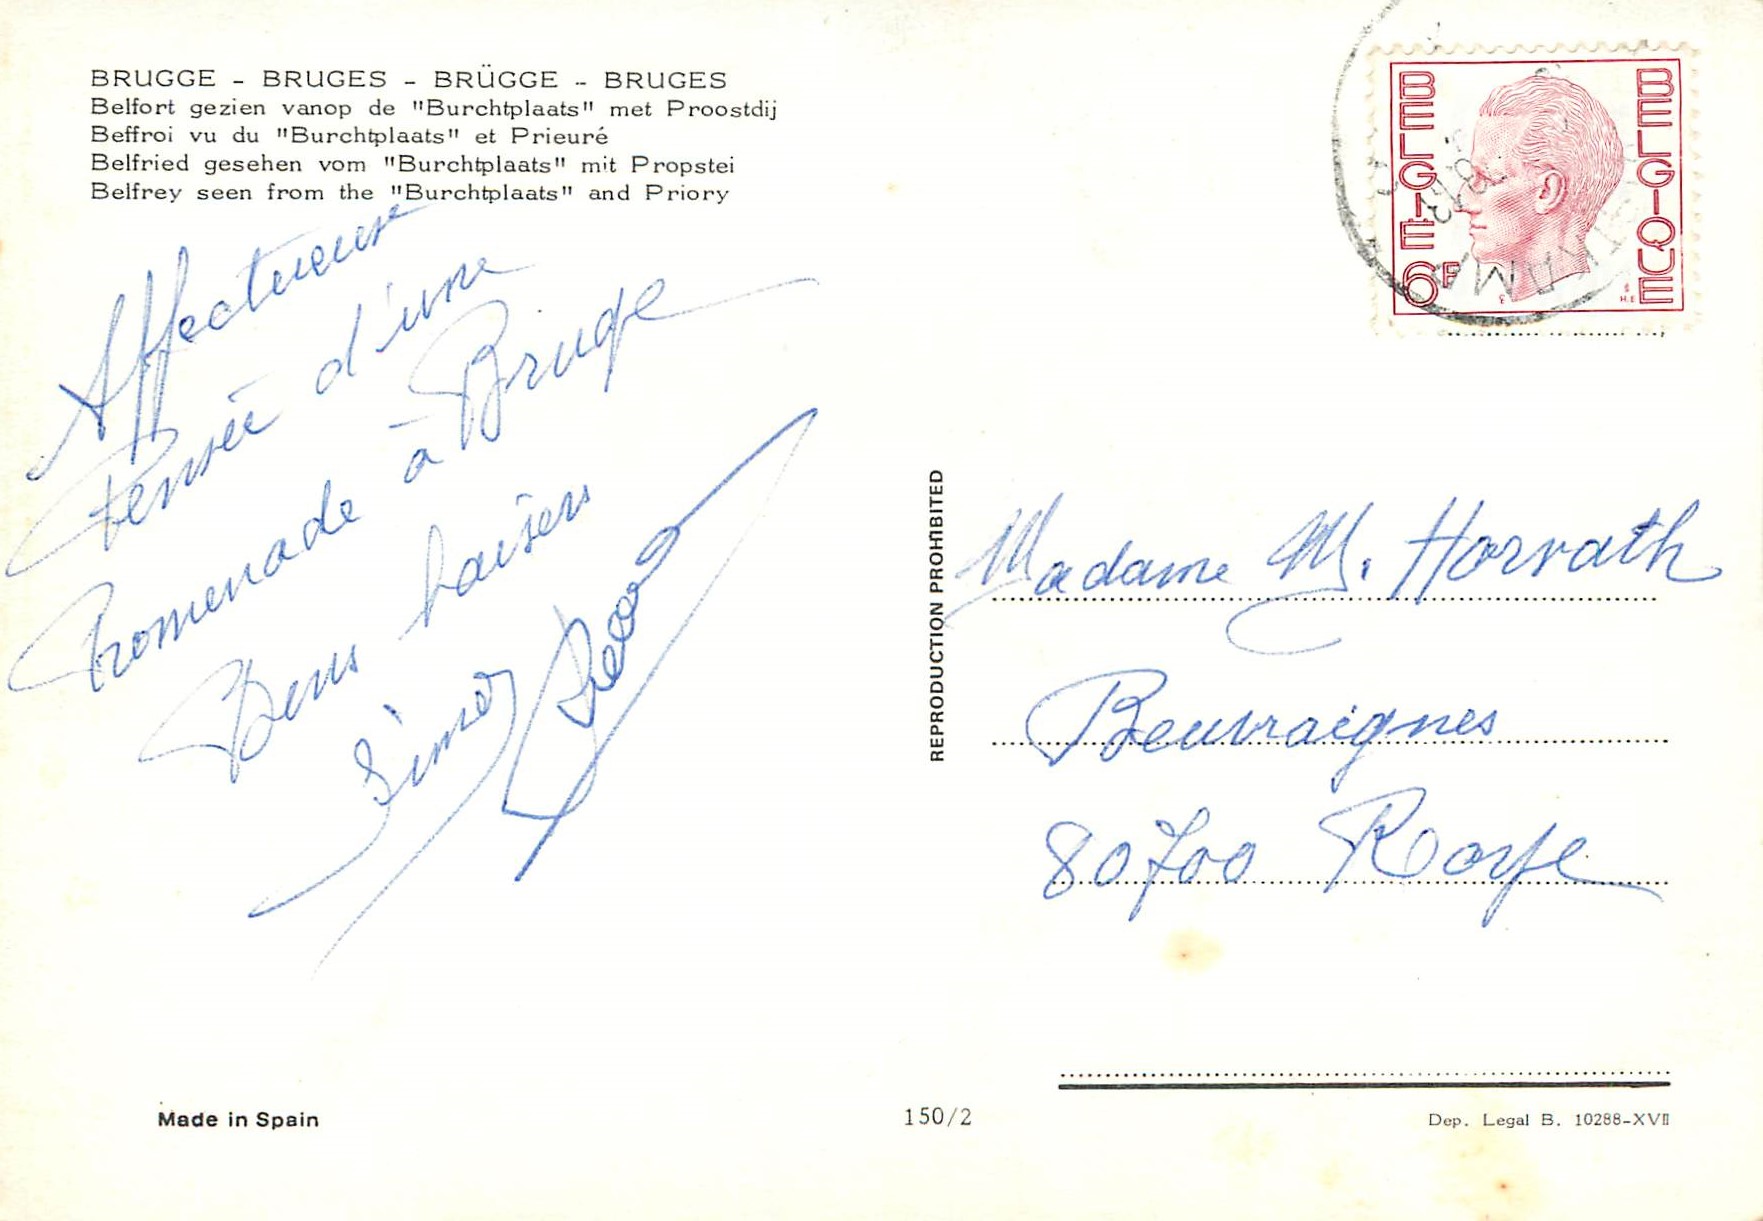 BRUGGE - BRUGES - BRÜGGE - BRUGES
Belfort gezien vanop de "Burchtplaats" met Proostdij
Beffroi vu du "Burchtplaats" et Prieuré
Belfried gesehen vom "Burchtplaats" mit Propstei
Belfrey seen from the "Burchtplaats" and Priory
Affectueuse
Pensée d'une
Promenade à Bruge
Bons baisers
BELGIE
BELGIQUE
6F
REPRODUCTION PROHIBITED
Madame M. Horvath
Beuvraignes
80700 Roye
Made in Spain
150/2
Dep. Legal B. 10288-XVII